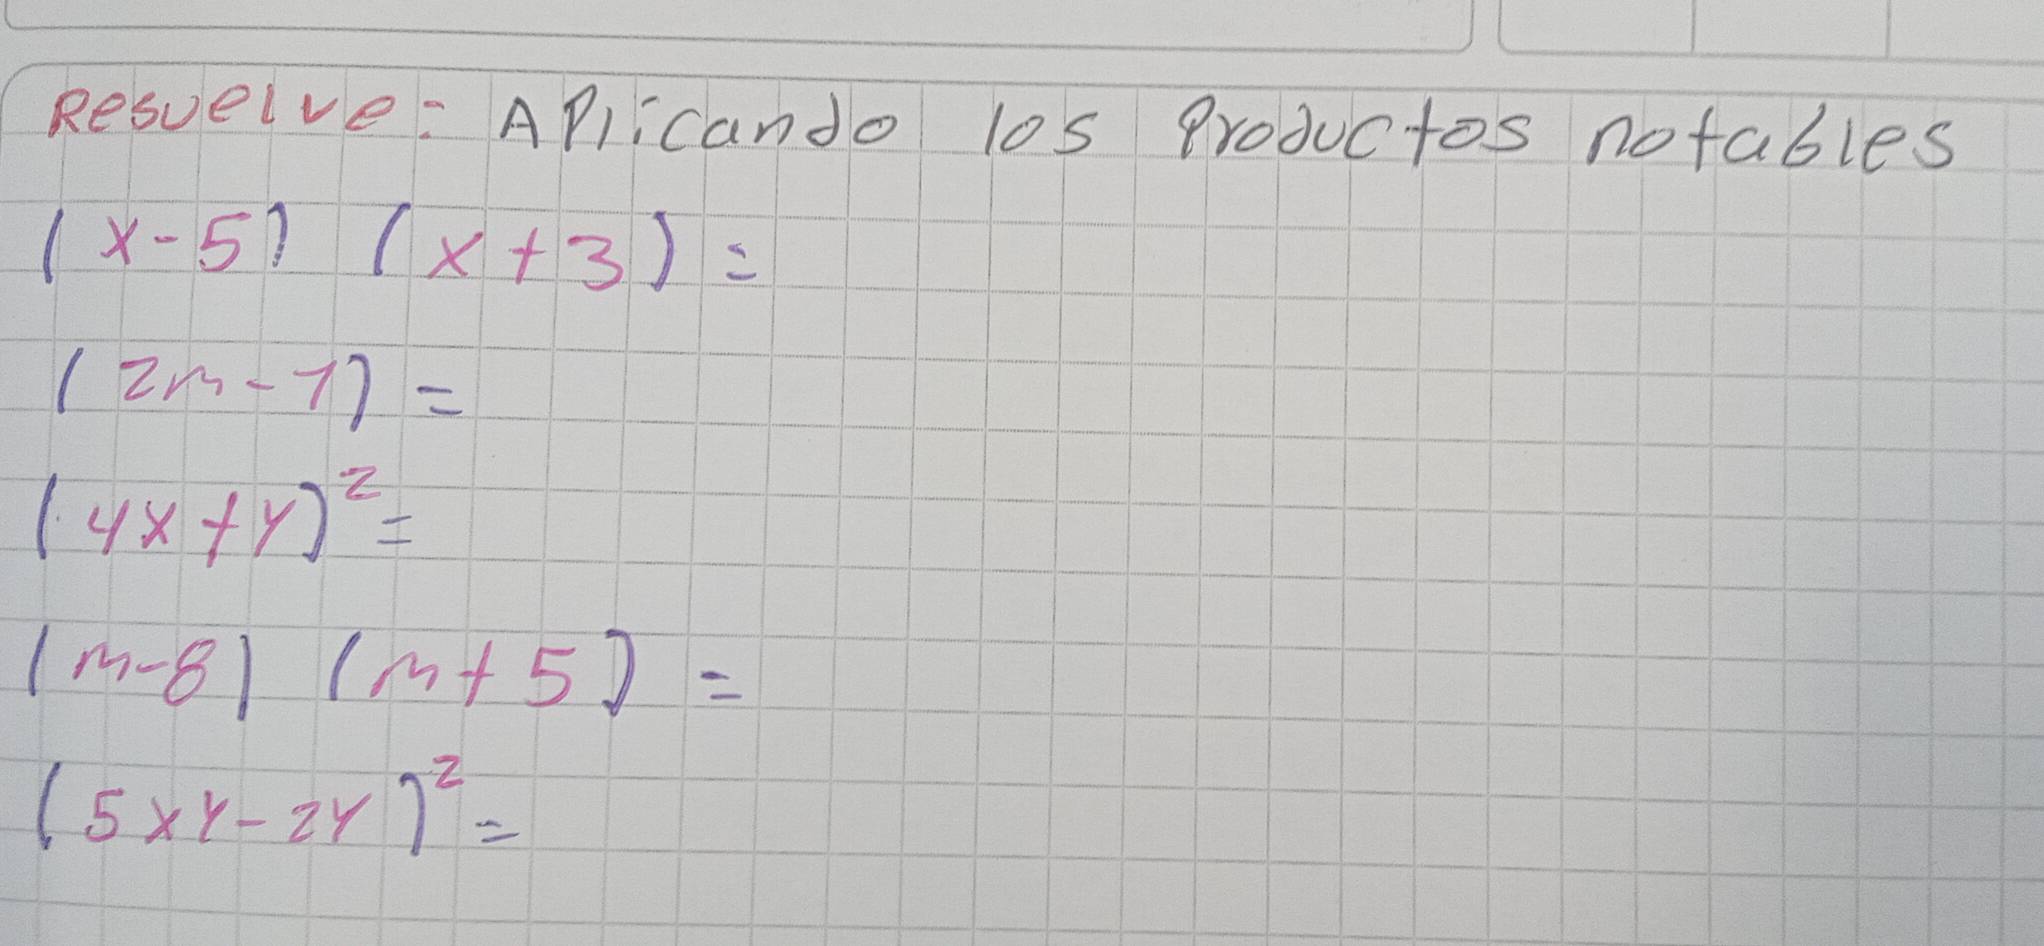 Resuelve: Aplicando los Productos notables
(x-5) (x+3) =
(2m-7) =
(4x+y)² =
(m-8) (m+5) =
(5xy-2y)² =